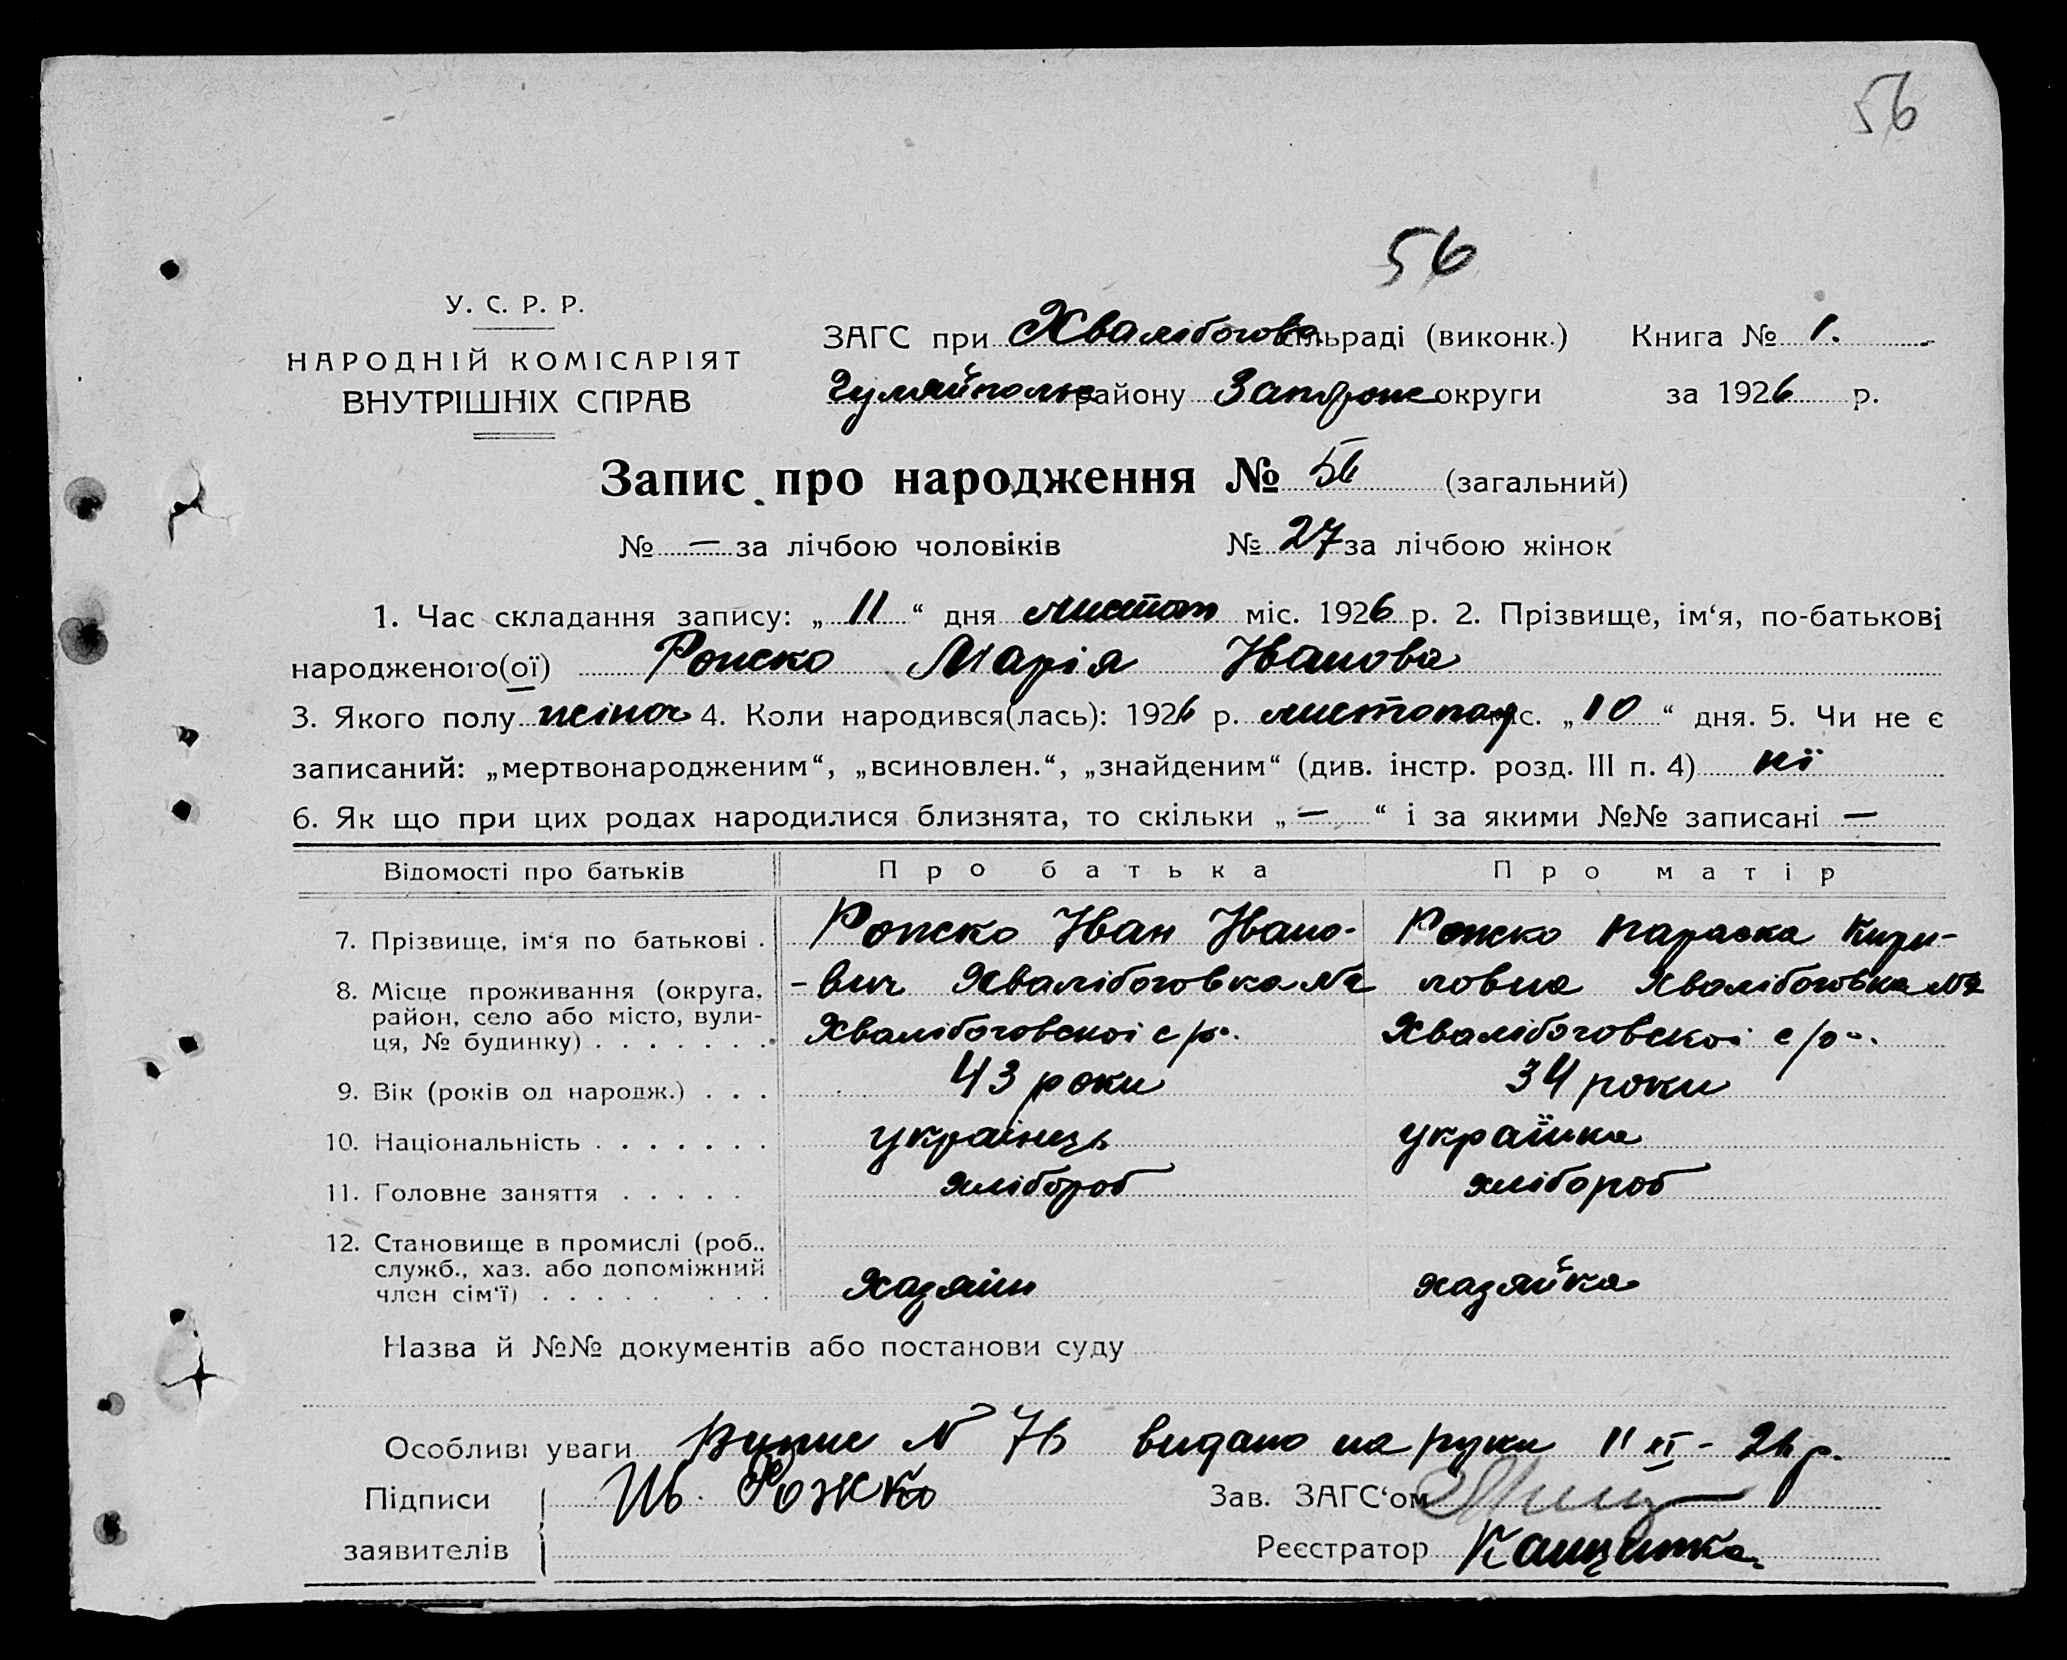 56
56
У. С. Р. Р.
НАРОДНІЙ КОМІСАРІЯТ
ВНУТРІШНІХ СПРАВ
ЗАГС при Хвалібогов сільраді (виконк.) Книга № 1.
Гуляйпольс району Запорож округи за 1926 р.
Запис про народження № 56 (загальний)
№ — за лічбою чоловіків № 27 за лічбою жінок
1. Час складання запису: „ 11 “ дня листоп міс. 1926 р. 2. Прізвище, ім‘я, по-батькові
народженого(ої) Рожко Марія Іванова
3. Якого полу жіноч 4. Коли народився(лась): 1926 р. листопад міс. „ 10 “ дня. 5. Чи не є
записаний: „мертвонародженим“, „всиновлен.“, „знайденим“ (див. інстр. розд. III п. 4) ні
6. Як що при цих родах народилися близнята, то скільки „ — “ і за якими №№ записані —
Відомості про батьків Про батька Про матір
7. Прізвище, ім‘я по батькові . Рожко Іван Івано- Рожко Параска Кири-
8. Місце проживання (округа, -вич Хвалібоговка №2 ловна Хвалібоговка №2
район, село або місто, вули-
ця, № будинку) . . . . . . . Хвалібоговскоі с/р. Хвалібоговскоі с/р.
9. Вік (років од народж.) . . . 43 роки 34 роки
10. Національність . . . . . . . українець українка
11. Головне заняття . . . . . хлібороб хлібороб
12. Становище в промислі (роб.,
служб., хаз. або допоміжний
член сім‘ї) . . . . . . . . хазяїн хазяйка
Назва й №№ документів або постанови суду
Особливі уваги Випис № 76 видано на руки 11 XI - 26 р.
Підписи Ив. Рожко Зав. ЗАГС‘ом
заявителів Реєстратор